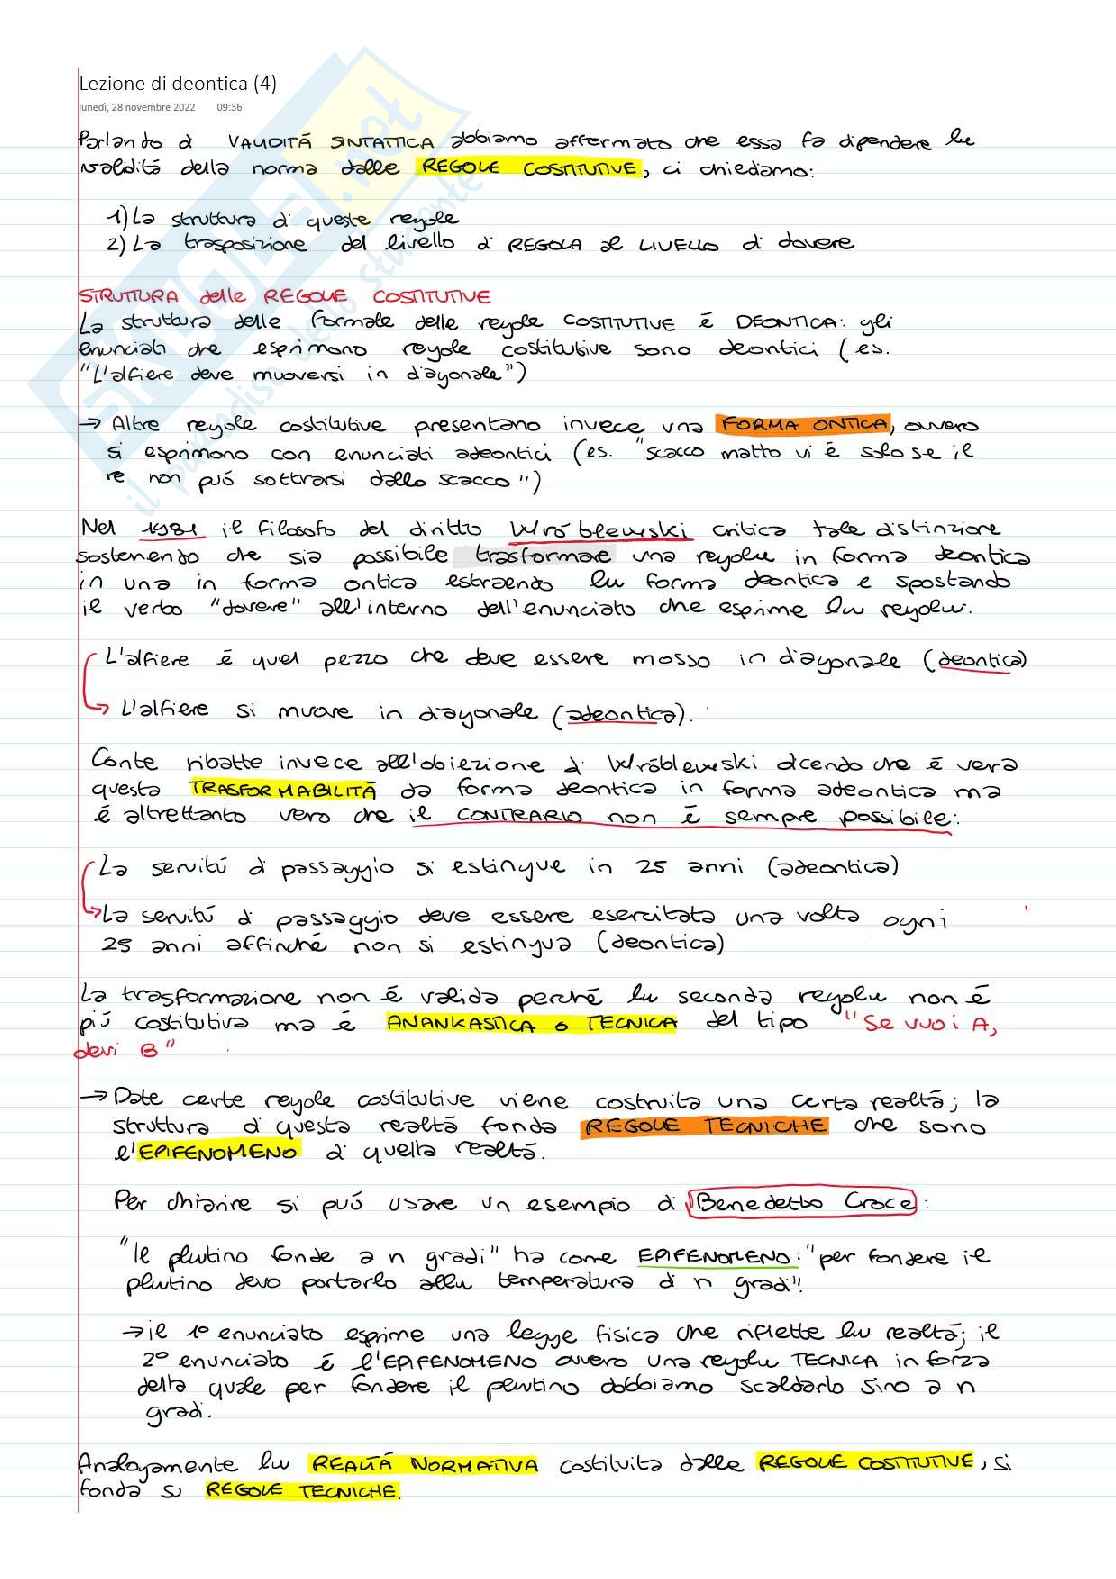 Lezione di deontica (4)
lunedì, 28 novembre 2022 09:36
Parlando di VALIDITÁ SINTATTICA abbiamo affermato che essa fa dipendere la
validitá della norma dalle REGOLE COSTITUTIVE, ci chiediamo:
1) La struttura di queste regole
2) La trasposizione del livello di REGOLA al LIVELLO di dovere
STRUTTURA delle REGOLE COSTITUTIVE
La struttura delle formale delle regole COSTITUTIVE é DEONTICA: gli
enunciati che esprimono regole costitutive sono deontici (es.
"L'alfiere deve muoversi in diagonale")
→ Altre regole costitutive presentano invece una FORMA ONTICA, ovvero
si esprimono con enunciati adeontici (es. "scacco matto vi é solo se il
re non puó sottrarsi dallo scacco")
Nel 1981 il filosofo del diritto Wróblewski critica tale distinzione
sostenendo che sia possibile trasformare una regola in forma deontica
in una in forma ontica estraendo la forma deontica e spostando
il verbo "dovere" all'interno dell'enunciato che esprime la regola.
L'alfiere é quel pezzo che deve essere mosso in diagonale (deontica)
→ L'alfiere si muove in diagonale (adeontica).
Conte ribatte invece all'obiezione di Wróblewski dicendo che é vera
questa TRASFORMABILITÁ da forma deontica in forma adeontica ma
é altrettanto vero che il CONTRARIO non é sempre possibile:
La servitú di passaggio si estingue in 25 anni (adeontica)
→ La servitú di passaggio deve essere esercitata una volta ogni
25 anni affinché non si estingua (deontica)
La trasformazione non é valida perché la seconda regola non é
piú costitutiva ma é ANANKASTICA o TECNICA del tipo "Se vuoi A,
devi B"
→ Date certe regole costitutive viene costruita una certa realtá; la
struttura di questa realtá fonda REGOLE TECNICHE che sono
l'EPIFENOMENO di quella realtá.
Per chiarire si puó usare un esempio di Benedetto Croce:
"Il plutino fonde a n gradi" ha come EPIFENOMENO: "per fondere il
plutino devo portarlo alla temperatura di n gradi".
→ il 1° enunciato esprime una legge fisica che riflette la realtá; il
2° enunciato é l'EPIFENOMENO ovvero una regola TECNICA in forza
della quale per fondere il plutino dobbiamo scaldarlo sino a n
gradi.
Analogamente la REALTÁ NORMATIVA costituita dalle REGOLE COSTITUTIVE, si
fonda su REGOLE TECNICHE.
SKUOLA.not
il paradiso dello studente